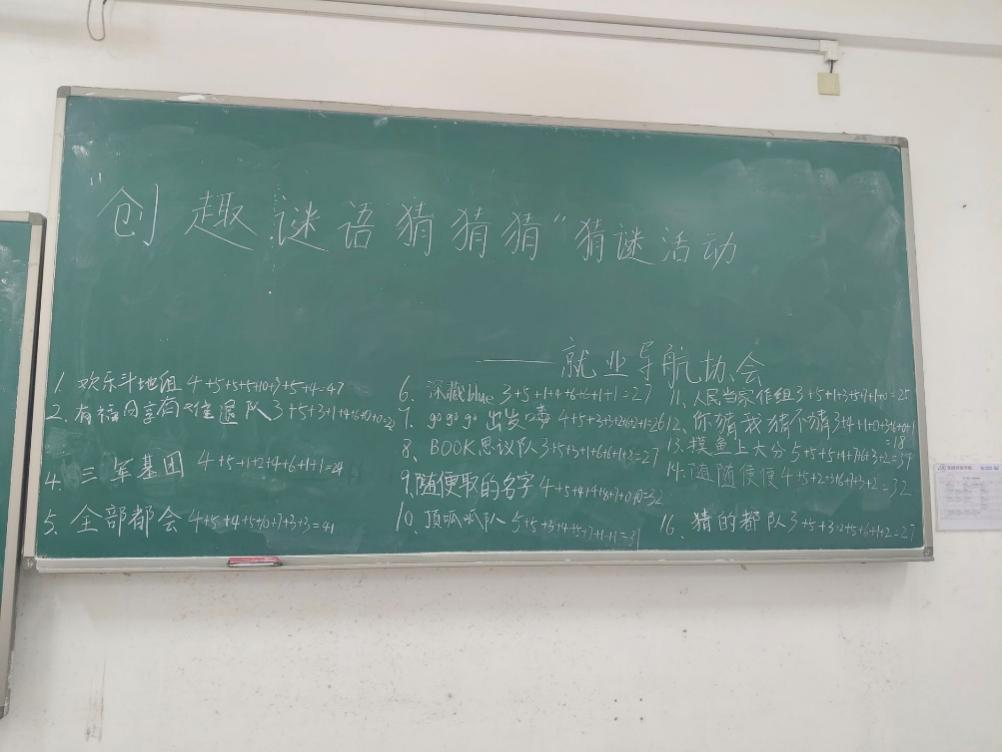 "创趣谜语猜猜猜"猜谜活动
——就业导航协会
1. 欢乐斗地组 4+5+5+5+10+7+5+4=47
2. 有福同享有难退队 3+5+3+1+4+6+0+0=22
4. 三军基团 4+5+1+2+4+6+1+1=24
5. 全部都会 4+5+4+5+10+7+3+3=41
6. 深藏blue 3+5+1+4+6+6+1+1=27
7. go go go 出发喽 4+5+3+3+2+6+2+1=26
8. BOOK思议队 3+5+3+1+6+6+1+2=27
9. 随便取的名字 4+5+4+4+8+7+0+0=32
10. 顶呱呱队 5+5+3+4+5+7+1+1=31
11. 人民当家作组 3+5+1+3+5+7+1+0=25
12. 你猜我猜不猜 3+4+1+0+3+6+0+1=18
13. 摸鱼上大分 5+5+5+4+7+6+3+2=37
14. 随随便便 4+5+2+3+6+7+3+2=32
16. 猜的都队 3+5+3+2+5+6+1+2=27